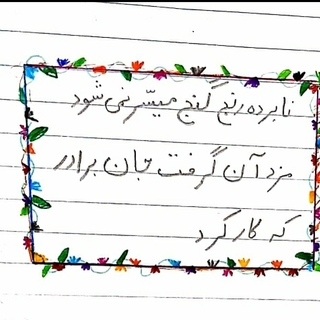 نابرده رنج گنج میسّر نمی شود
مزد آن گرفت جان برادر
که کار کرد